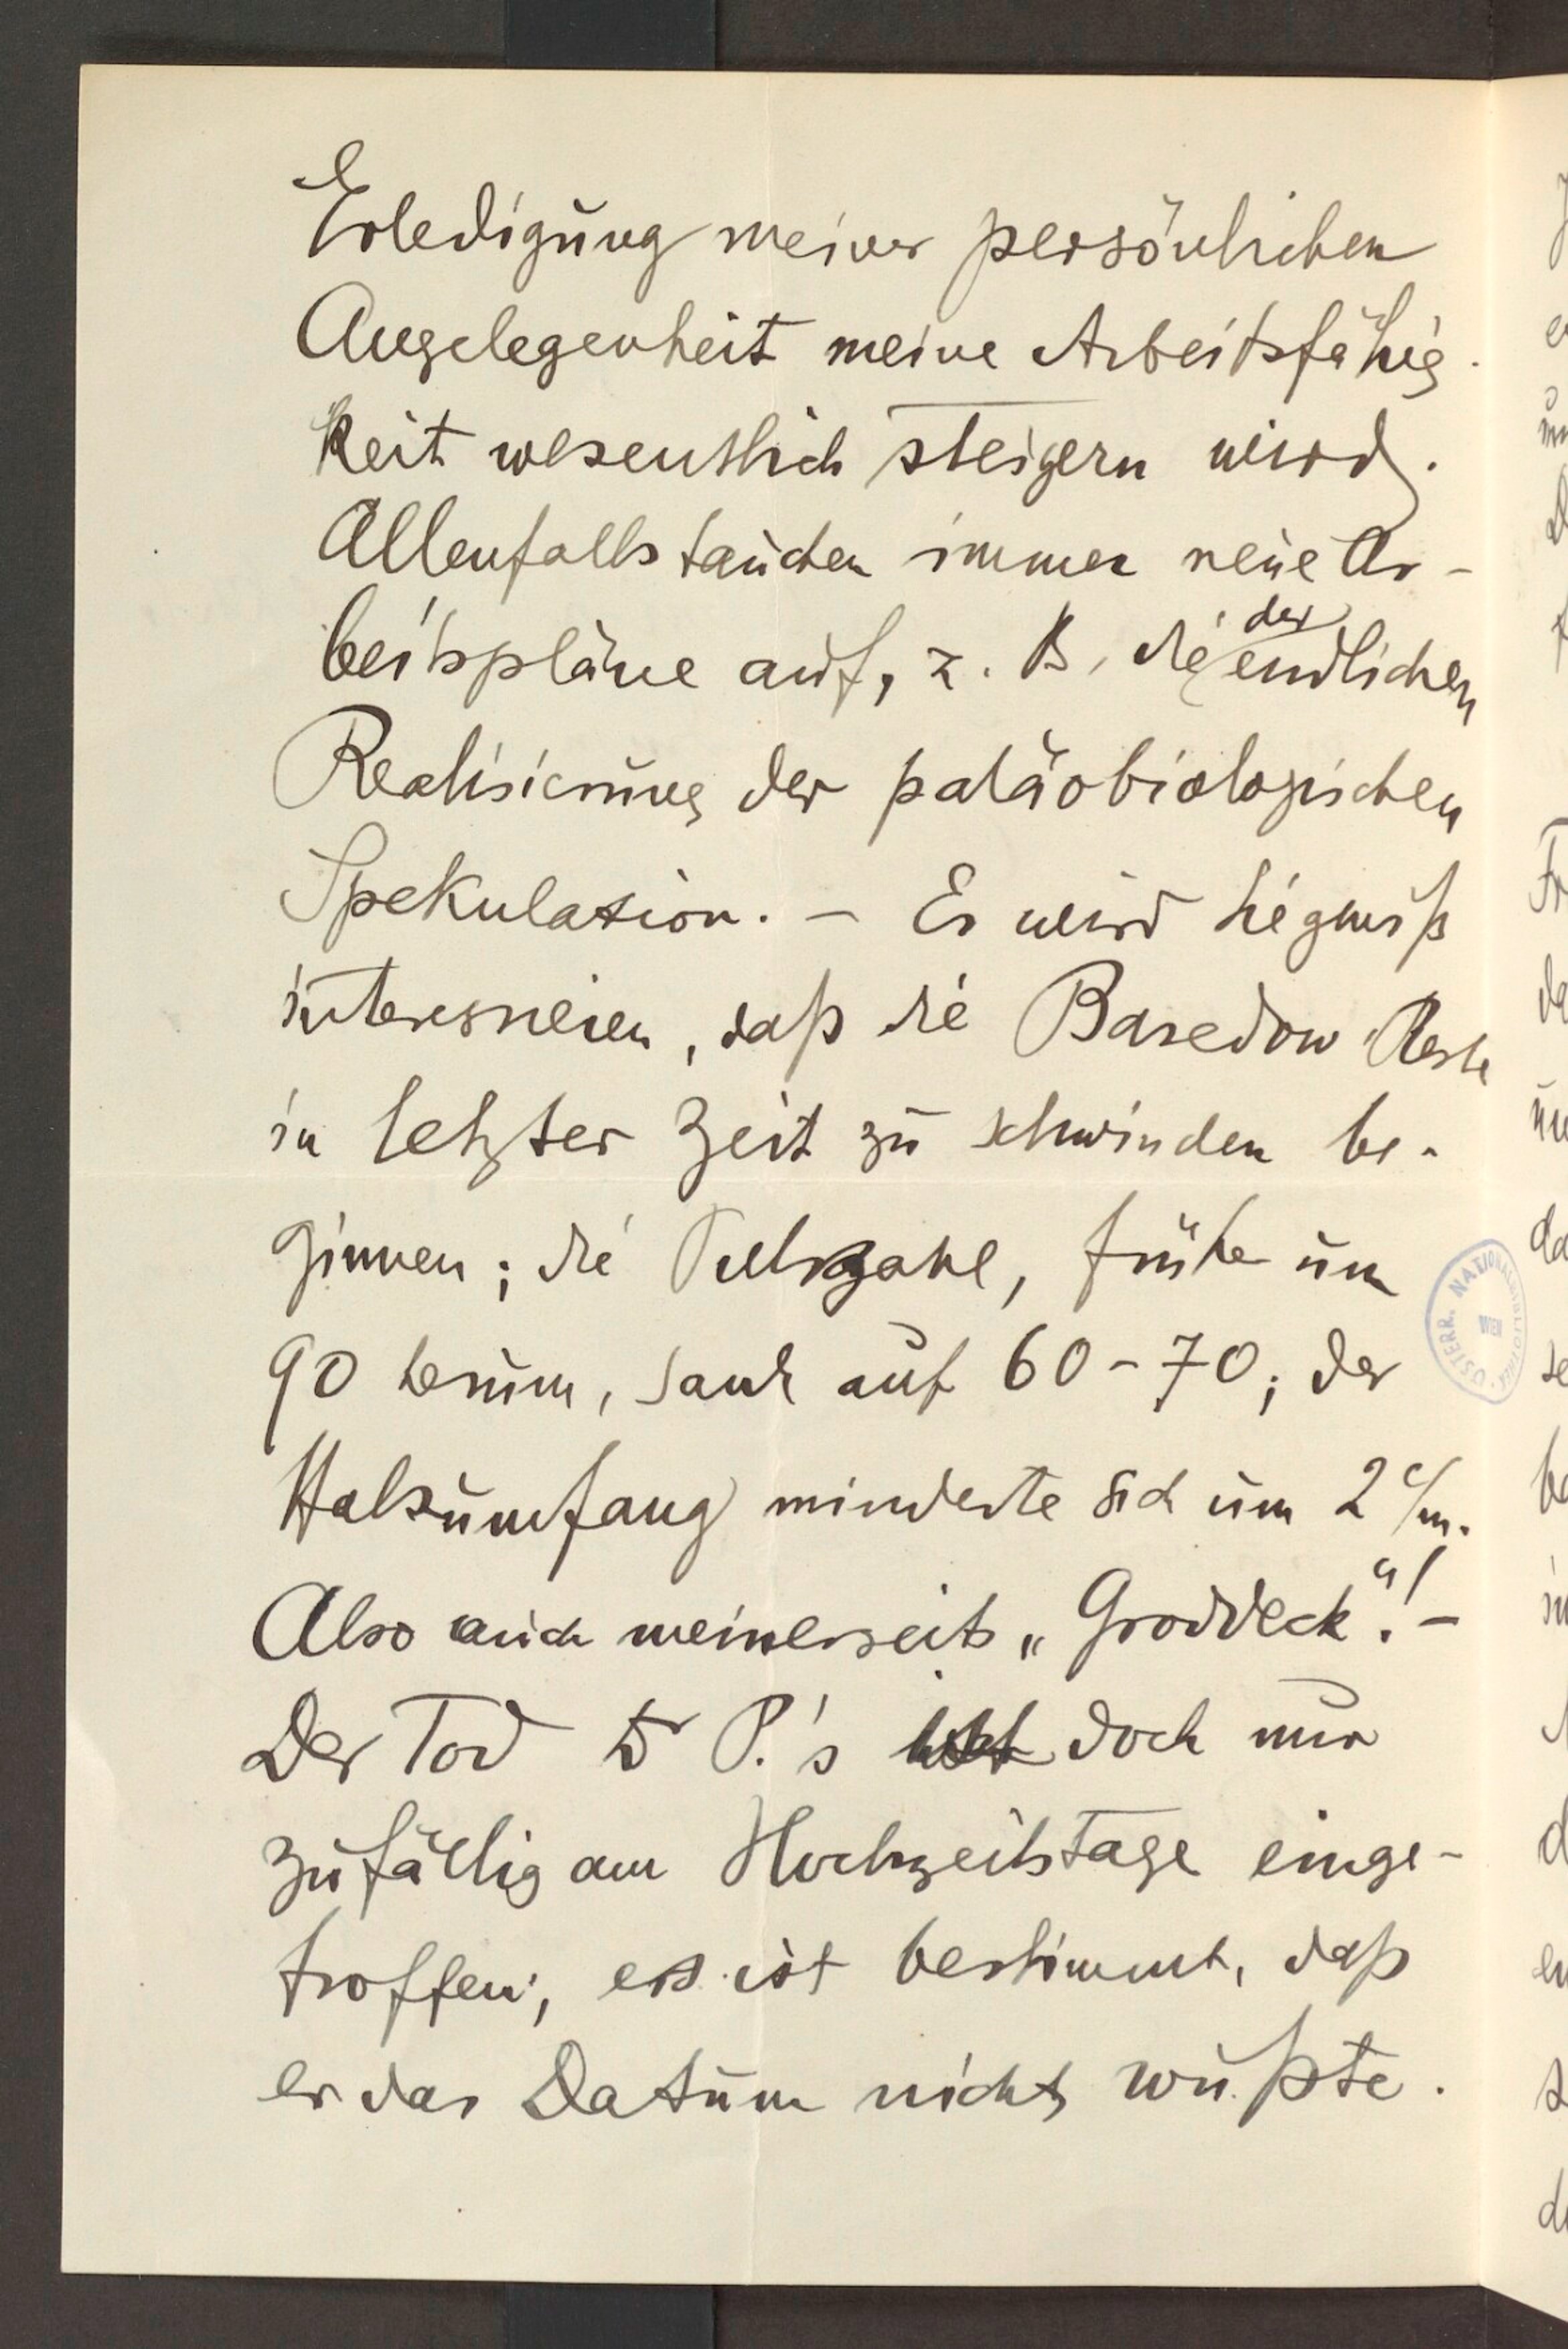 Erledigung meiner persönlichen
Angelegenheit meine Arbeitsfähig-
keit wesentlich steigern wird.
Allenfalls tauchen immer neue Ar-
beitspläne auf, z. B. die der endlichen
Realisierung der paläobiologischen
Spekulation. – Es wird Sie gewiß
interessieren, daß die Basedow Reste
in letzter Zeit zu schwinden be-
ginnen; die Pulszahl, früher um
90 herum, sank auf 60-70; der
Halsumfang minderte sich um 2 c/m.
Also auch meinerseits „Groddeck“! –
Der Tod Dr P.'s ist doch nur
zufällig am Hochzeitstage einge-
troffen; es ist bestimmt, daß
er das Datum nicht wußte.
ÖSTERR. NATIONALBIBLIOTHEK
WIEN